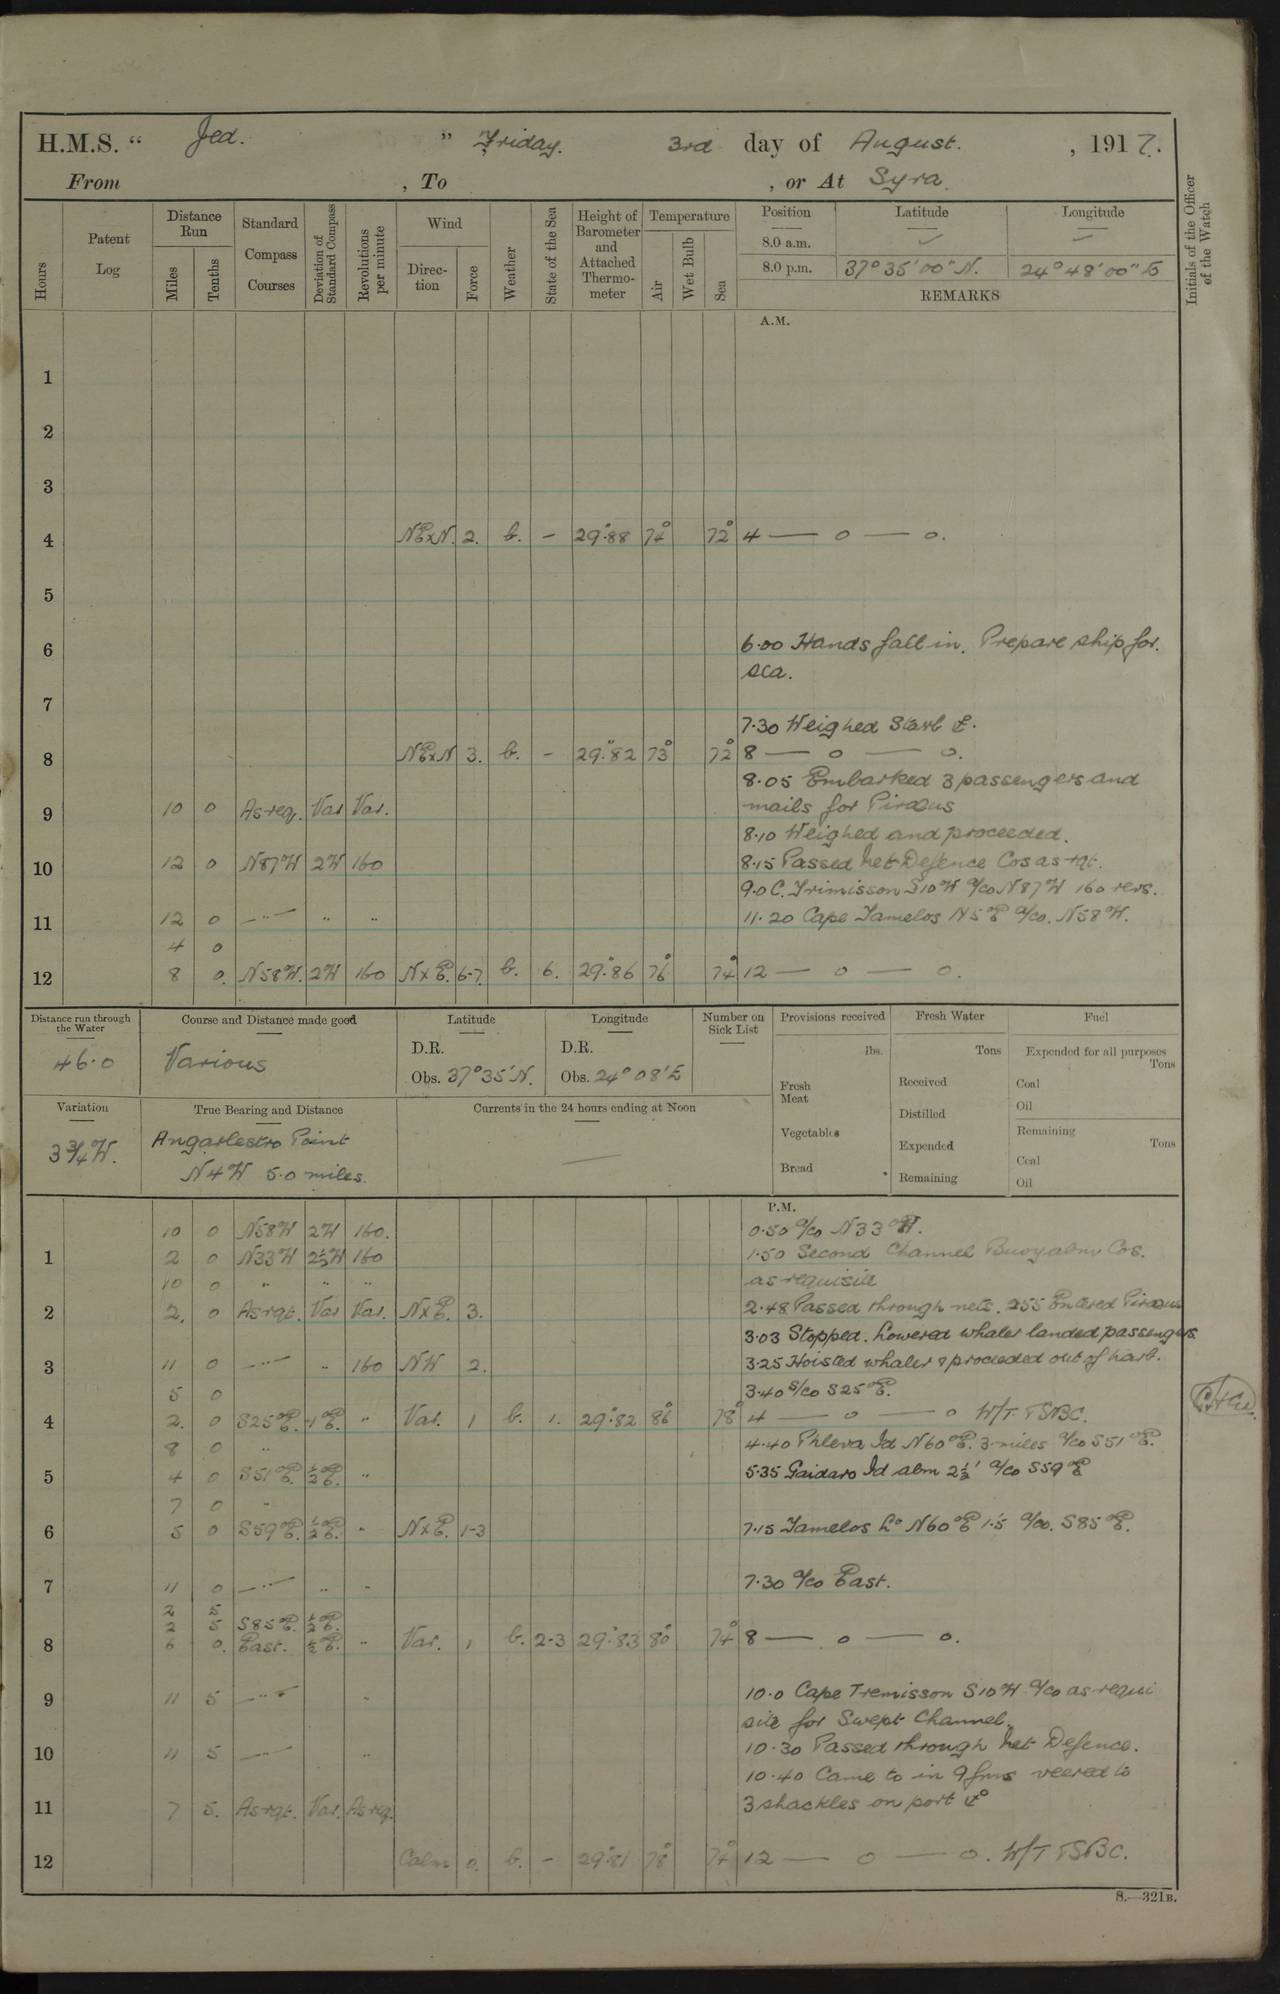 H.M.S. “ Jed. ” Friday. 3rd day of August. , 1917.
From , To , or At Syra.
Hours
Patent Log
Distance Run
Miles
Tenths
Standard Compass Courses
Deviation of Standard Compass
Revolutions per minute
Wind
Direc-tion
Force
Weather
State of the Sea
Height of Barometer and Attached Thermo-meter
Temperature
Air
Wet Bulb
Sea
Position Latitude Longitude
8.0 a.m. ✓ ✓
8.0 p.m. 37° 35' 00" N. 24° 48' 00" E
REMARKS
Initials of the Officer of the Watch
A.M.
1
2
3
4 NExN. 2. b. – 29".88 74° 72° 4 — o — o.
5
6 6.00 Hands fall in. Prepare ship for.
sea.
7
7.30 Weighed Starb
8 NExN 3. b. – 29".82 73° 72° 8 — o — o.
8.05 Embarked 3 passengers and
9 10 0 As req. Var Var. mails for Piraeus
8.10 Weighed and proceeded.
10 12 0 N87W 2W 160 8.15 Passed Net Defence Cos as rqt.
9.0 C. Trimisson S10W a/co N87W 160 revs.
11 12 0 —"— " " 11.20 Cape Tamelos N5E a/co. N58W.
4 0
12 8 0. N58W. 2W 160 NxE. 6-7. b. 6. 29".86 76° 74° 12 — o — o.
Distance run through the Water
46.0
Course and Distance made good
Various
Latitude
D.R.
Obs. 37° 35' N.
Longitude
D.R.
Obs. 24° 08' E
Number on Sick List
Provisions received
lbs.
Fresh Meat
Vegetables
Bread
Fresh Water
Tons
Received
Distilled
Expended
Remaining
Fuel
Expended for all purposes
Tons
Coal
Oil
Remaining
Tons
Coal
Oil
Variation
3 3/4 W.
True Bearing and Distance
Point
N4W 5.0 miles.
Currents in the 24 hours ending at Noon
—
P.M.
10 0 N58W 2W 160. 0.50 a/co N33W.
1 2 0 N33W 2½W 160 1.50 Second Channel Buoy abm Cos.
10 0 " " " as requisite
2 2. 0 As rqt. Var Var. NxE. 3. 2.48 Passed through nets. 255 Entered Piraeus
3.03 Stopped. Lowered whaler landed passengers
3 11 0 —"— " 160 NW 2. 3.25 Hoisted whaler & proceeded out of harb.
5 0 3.40 s/co S25E.
4 2. 0 S25E. 1E. " Var. 1 b. 1. 29".82 86° 78° 4 — o — o W/T TSBC.
8 0 " 4.40 Phleva Id N60E. 3 miles a/co S51E.
5 4 0 S51E. ½E. " 5.35 Gaidaro Id abm 2½' a/co S59E
7 0 "
6 5 0 S59E. ½E. " NxE. 1-3 7.15 Tamelos Lo N60E 1.5 a/co. S85E.
7 11 0 —"— " " 7.30 a/co East.
2 5
2 5 S85E. ½E.
8 6 0. East. ½E. " Var. 1 b. 2-3 29".83 80° 74° 8 — o — o.
9 11 5 —"— " 10.0 Cape Tremisson S10W a/co as requi
site for Swept Channel.
10 11 5 —"— " 10.30 Passed through Net Defence.
10.40 Came to in 9 fms veered to
11 7 5. As rqt. Var. As req. 3 shackles on port
12 Calm 0. b. – 29".81 78° 74° 12 — o — o. W/T TSBC.
S.—321B.